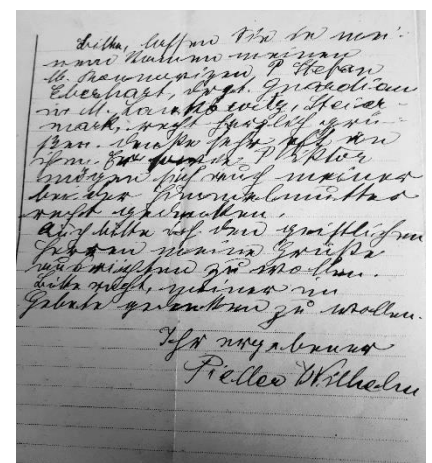 Bitte, lassen Sie in mei-
nem Namen meinen
lb. P. Stefan
Eberhart, dzt. Guardian
in M. Lankowitz, Steier-
mark, recht herzlich grü-
ßen. Denke sehr oft an
ihn. Er P. Viktor
mögen sich auch meiner
bei der Himmelmutter
recht gedenken.
Auch bitte ich den geistlichen
Herren meine Grüße
ausrichten zu wollen.
Bitte recht, meiner im
Gebete gedenken zu wollen.
Ihr ergebener
Wilhelm